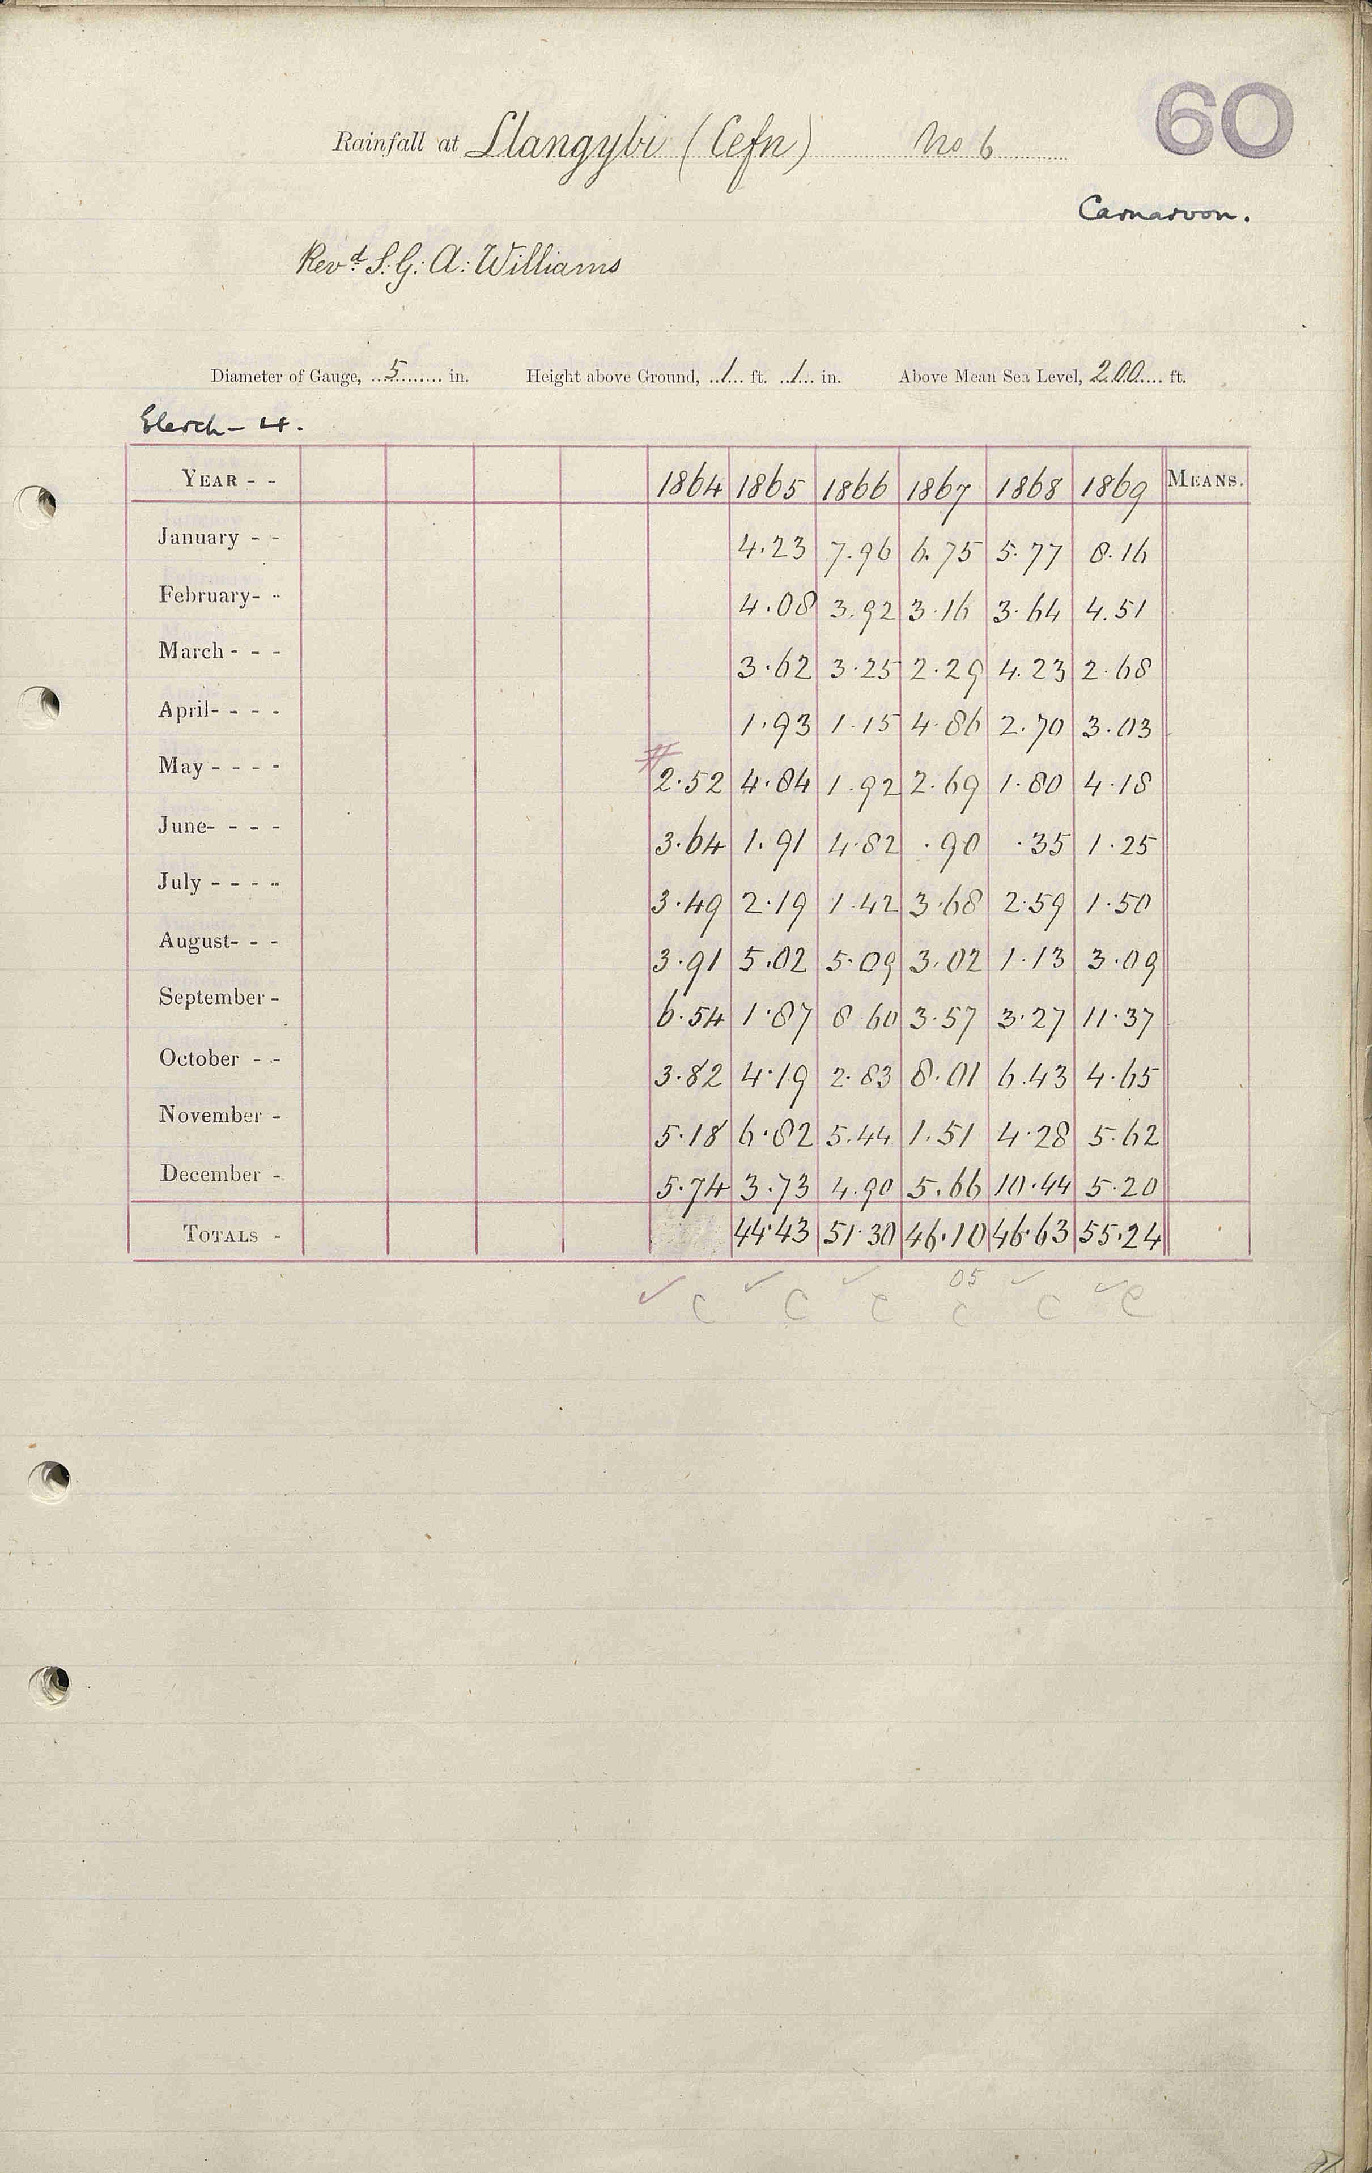 60
Rainfall at Llangybi (Cefn) No 6
Carnarvon.
Revd. S. G. A. Williams
Diameter of Gauge, 5 in. Height above Ground, 1 ft. 1 in. Above Mean Sea Level, 200 ft.
Elerch - 4.
YEAR - - 1864 1865 1866 1867 1868 1869 MEANS.
January - - 4.23 7.96 6.75 5.77 8.16
February - - 4.08 3.92 3.16 3.64 4.51
March - - - 3.62 3.25 2.29 4.23 2.68
April - - - - 1.93 1.15 4.86 2.70 3.03
May - - - - 2.52 4.84 1.92 2.69 1.80 4.18
June - - - - 3.64 1.91 4.82 .90 .35 1.25
July - - - - 3.49 2.19 1.42 3.68 2.59 1.50
August - - - 3.91 5.02 5.09 3.02 1.13 3.09
September - 6.54 1.87 8.60 3.57 3.27 11.37
October - - 3.82 4.19 2.83 8.01 6.43 4.65
November - 5.18 6.82 5.44 1.51 4.28 5.62
December - 5.74 3.73 4.90 5.66 10.44 5.20
TOTALS - 44.43 51.30 46.10 46.63 55.24
05
✓ C ✓ C ✓ C C ✓ C ✓ C